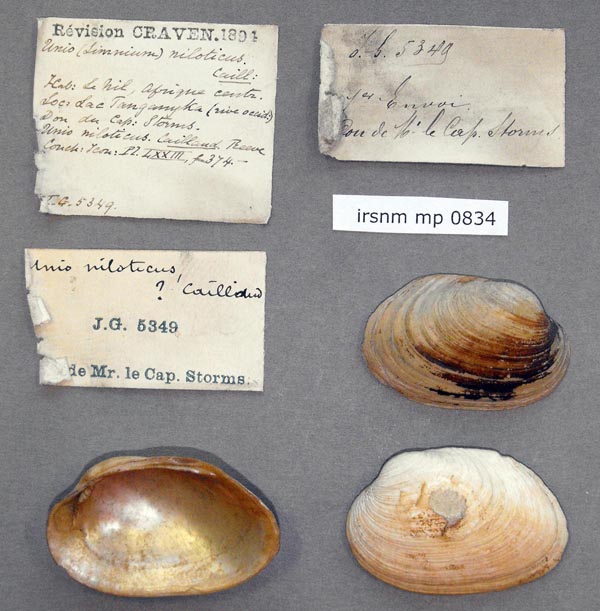 Révision CRAVEN.1894
Unio (Limnium) niloticus.
Caill:
Hab: Le Nil, Afrique centr.
Loc: Lac Tanganyka (rive occid:)
Don du Cap: Storms.
Unio niloticus. Cailleaud. Reeve
Conch: Icon: Pl. LXXIII, f. 374.—
J.G. 5349.
J. G. 5349
1er Envoi
Don de Mr le Cap. Storms
irsnm mp 0834
Unio niloticus,
? Cailliaud
J.G. 5349
de Mr. le Cap. Storms.